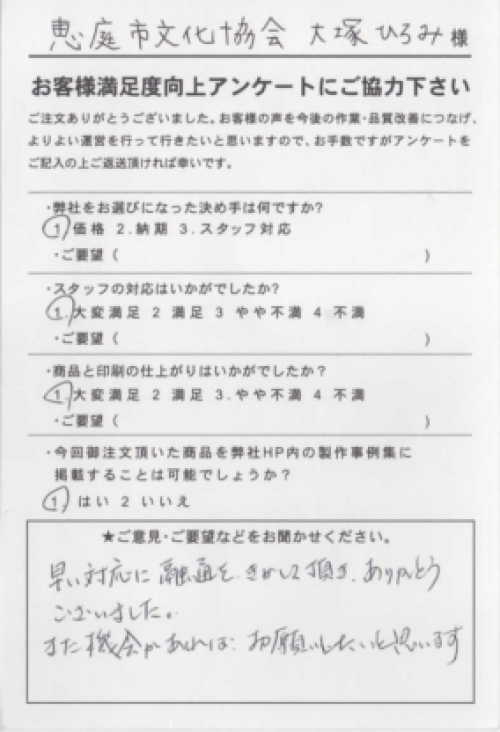 恵庭市文化協会 大塚ひろみ様
お客様満足度向上アンケートにご協力下さい
ご注文ありがとうございました。お客様の声を今後の作業・品質改善につなげ、
よりよい運営を行って行きたいと思いますので、お手数ですがアンケートを
ご記入の上ご返送頂ければ幸いです。
・弊社をお選びになった決め手は何ですか?
1.価格 2.納期 3.スタッフ対応
・ご要望( )
・スタッフの対応はいかがでしたか?
1.大変満足 2 満足 3 やや不満 4 不満
・ご要望( )
・商品と印刷の仕上がりはいかがでしたか?
1.大変満足 2 満足 3.やや不満 4 不満
・ご要望( )
・今回御注文頂いた商品を弊社HP内の製作事例集に
掲載することは可能でしょうか?
1.はい 2 いいえ
★ご意見・ご要望などをお聞かせください。
早い対応に融通を、きかして頂き、ありがとう
ございました。
また機会があれば、お願いしたいと思います